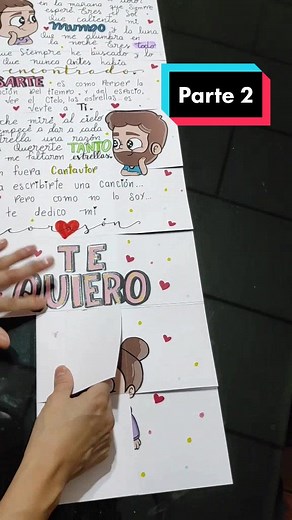 en la mañana que siempre
esperé. Eres el sol
que calienta mi
mundo y la luna
que me alumbra en
la noche. Eres todo
que siempre he buscado y lo
que nunca antes había
encontrado
Parte 2
SARTE es como romper la
ción del tiempo y del espacio,
ver el cielo, las estrellas es
verte a Ti.
che miré al cielo
empecé a dar a cada
trella una razón
Quererte TANTO
me faltaron estrellas.
fuera Cantautor
a escribirte una canción...
Pero como no lo soy...
te dedico mi
corazón
TE
QUIERO